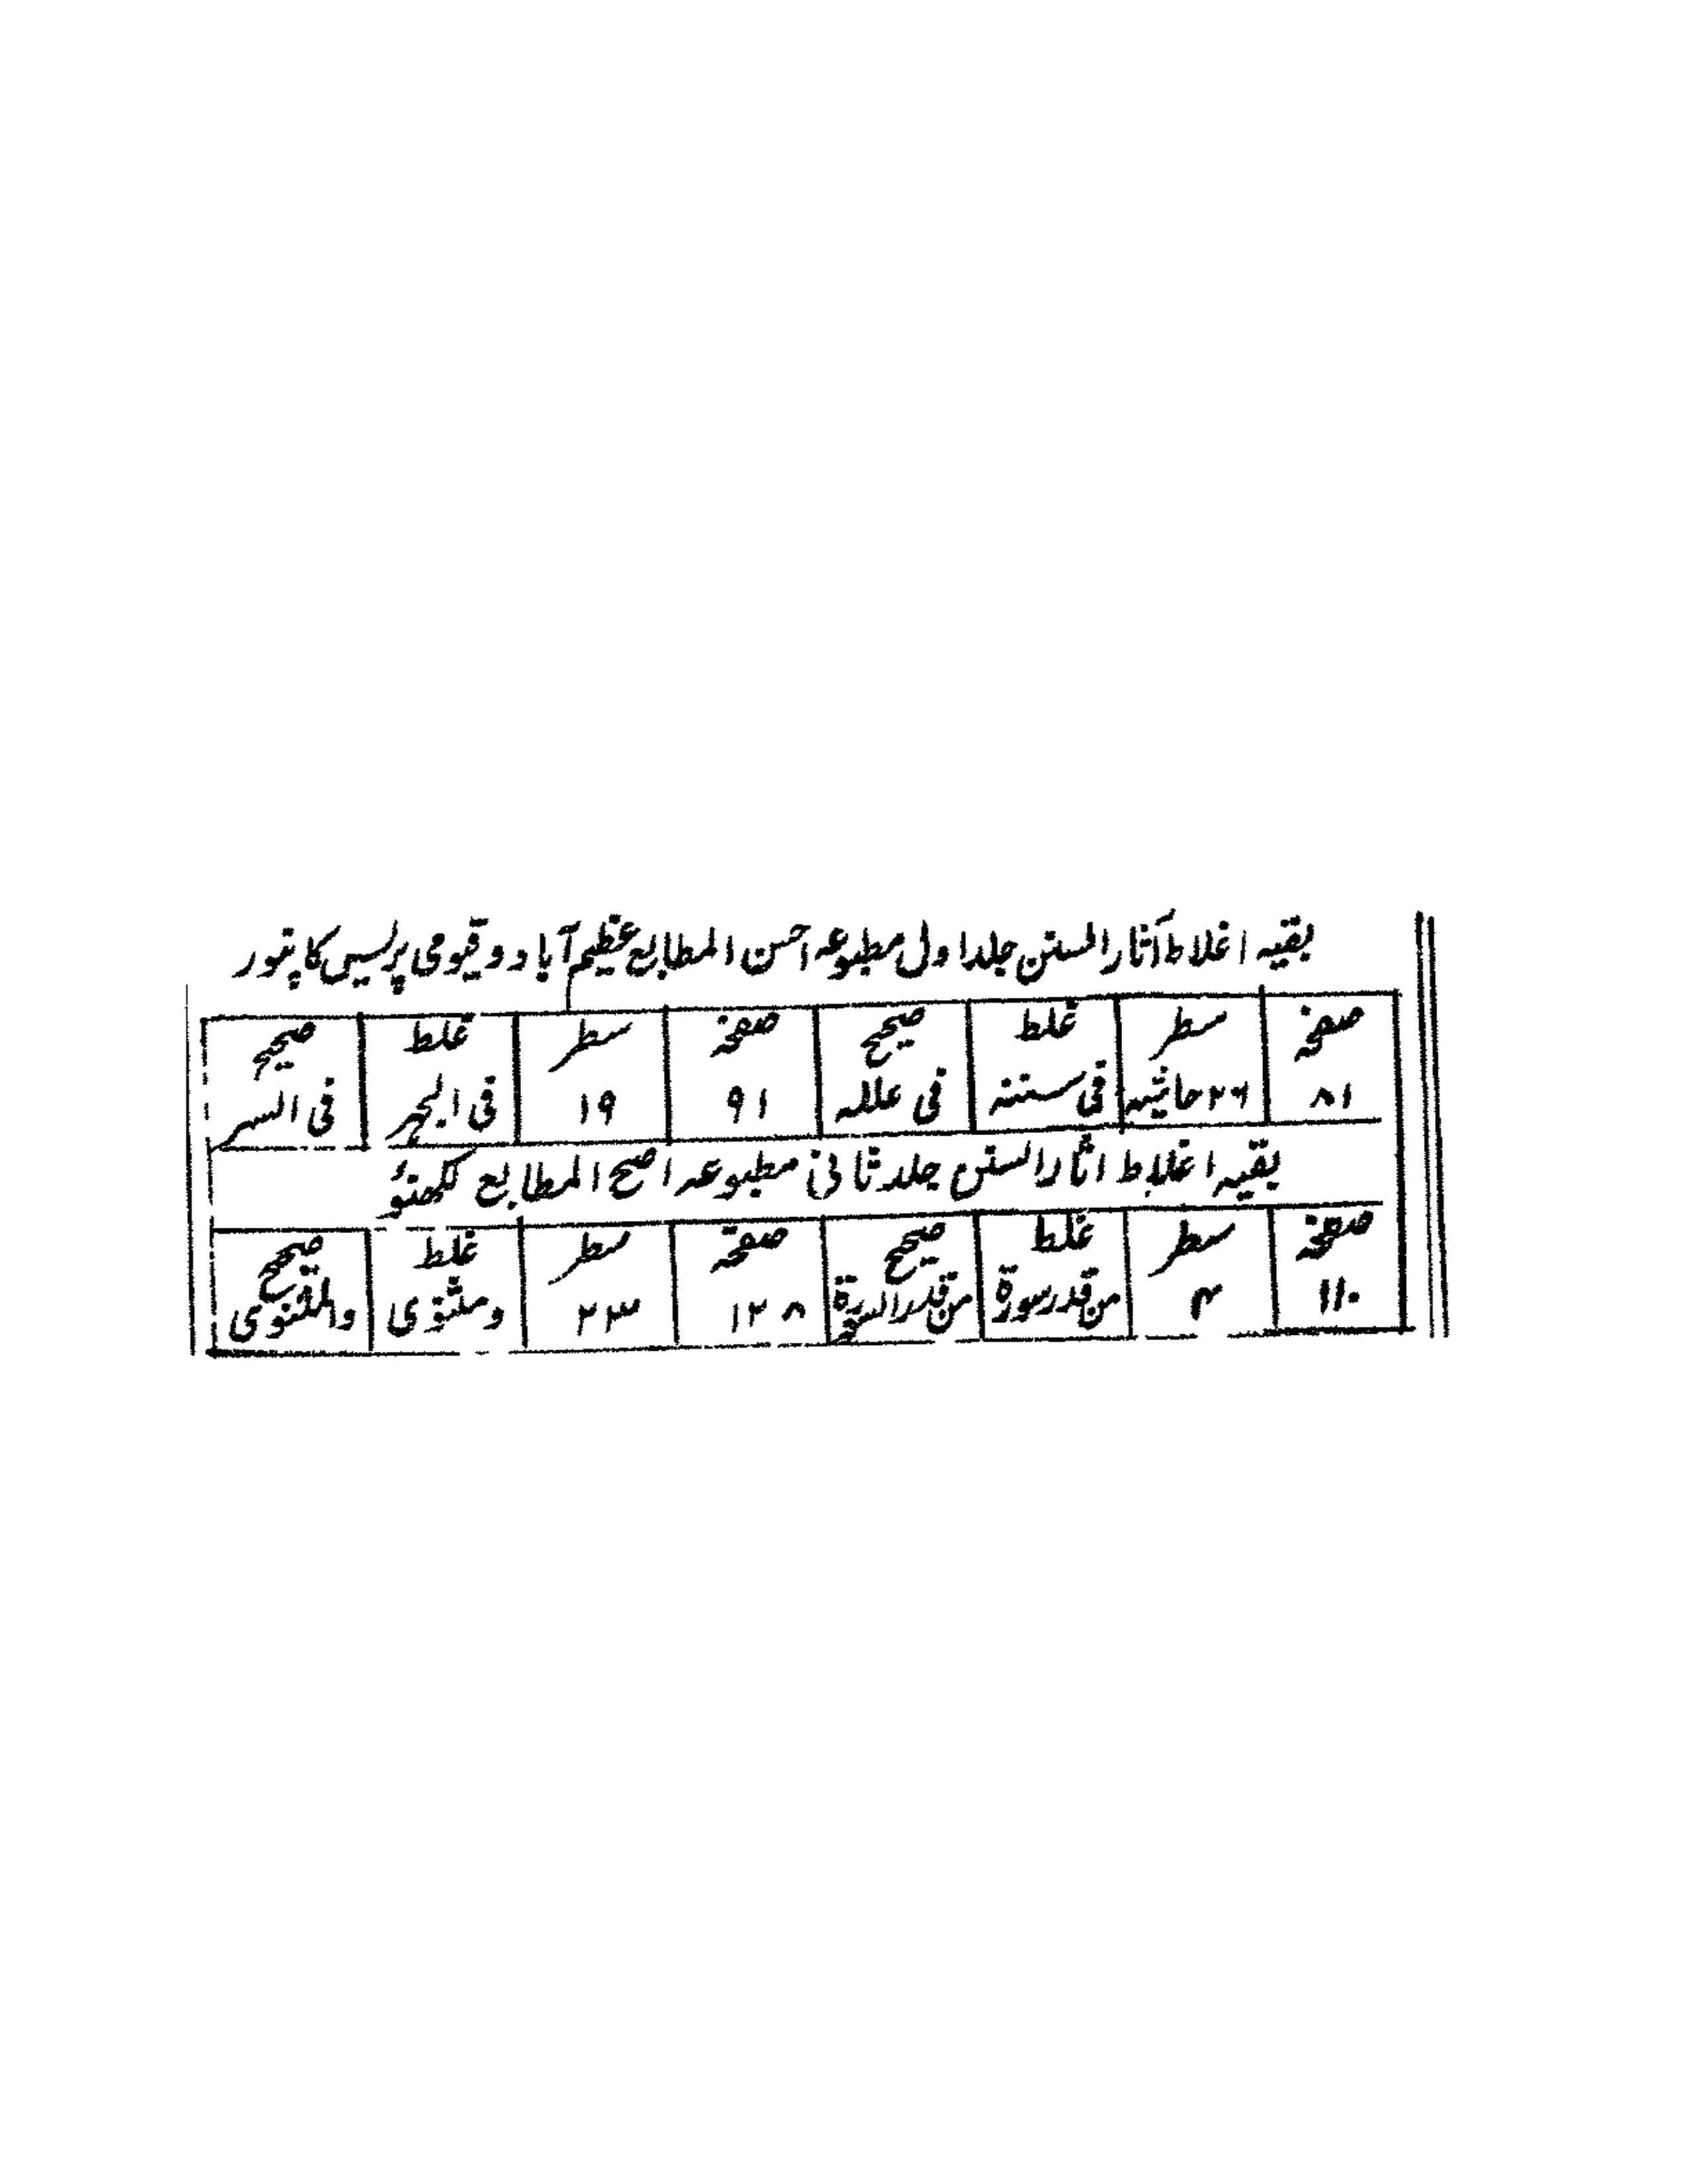 بقیہ اغلاط آثار السنن جلد اول مطبوعہ احسن المطابع عظیم آباد و قیومی پریس کانپور
صفحہ سطر غلط صحیح صفحہ سطر غلط صحیح
۸۱ ۲۶ حاشیہ فی سننہ فی عللہ ۹۱ ۱۹ فی الجہر فی السر
بقیہ اغلاط اثار السنن جلد ثانی مطبوعہ اصح المطابع لکھنؤ
صفحہ سطر غلط صحیح صفحہ سطر غلط صحیح
۱۱۰ ۴ من قدر سورۃ من قدر السورۃ ۱۲۸ ۲۳ ومثنوی والمثنوی